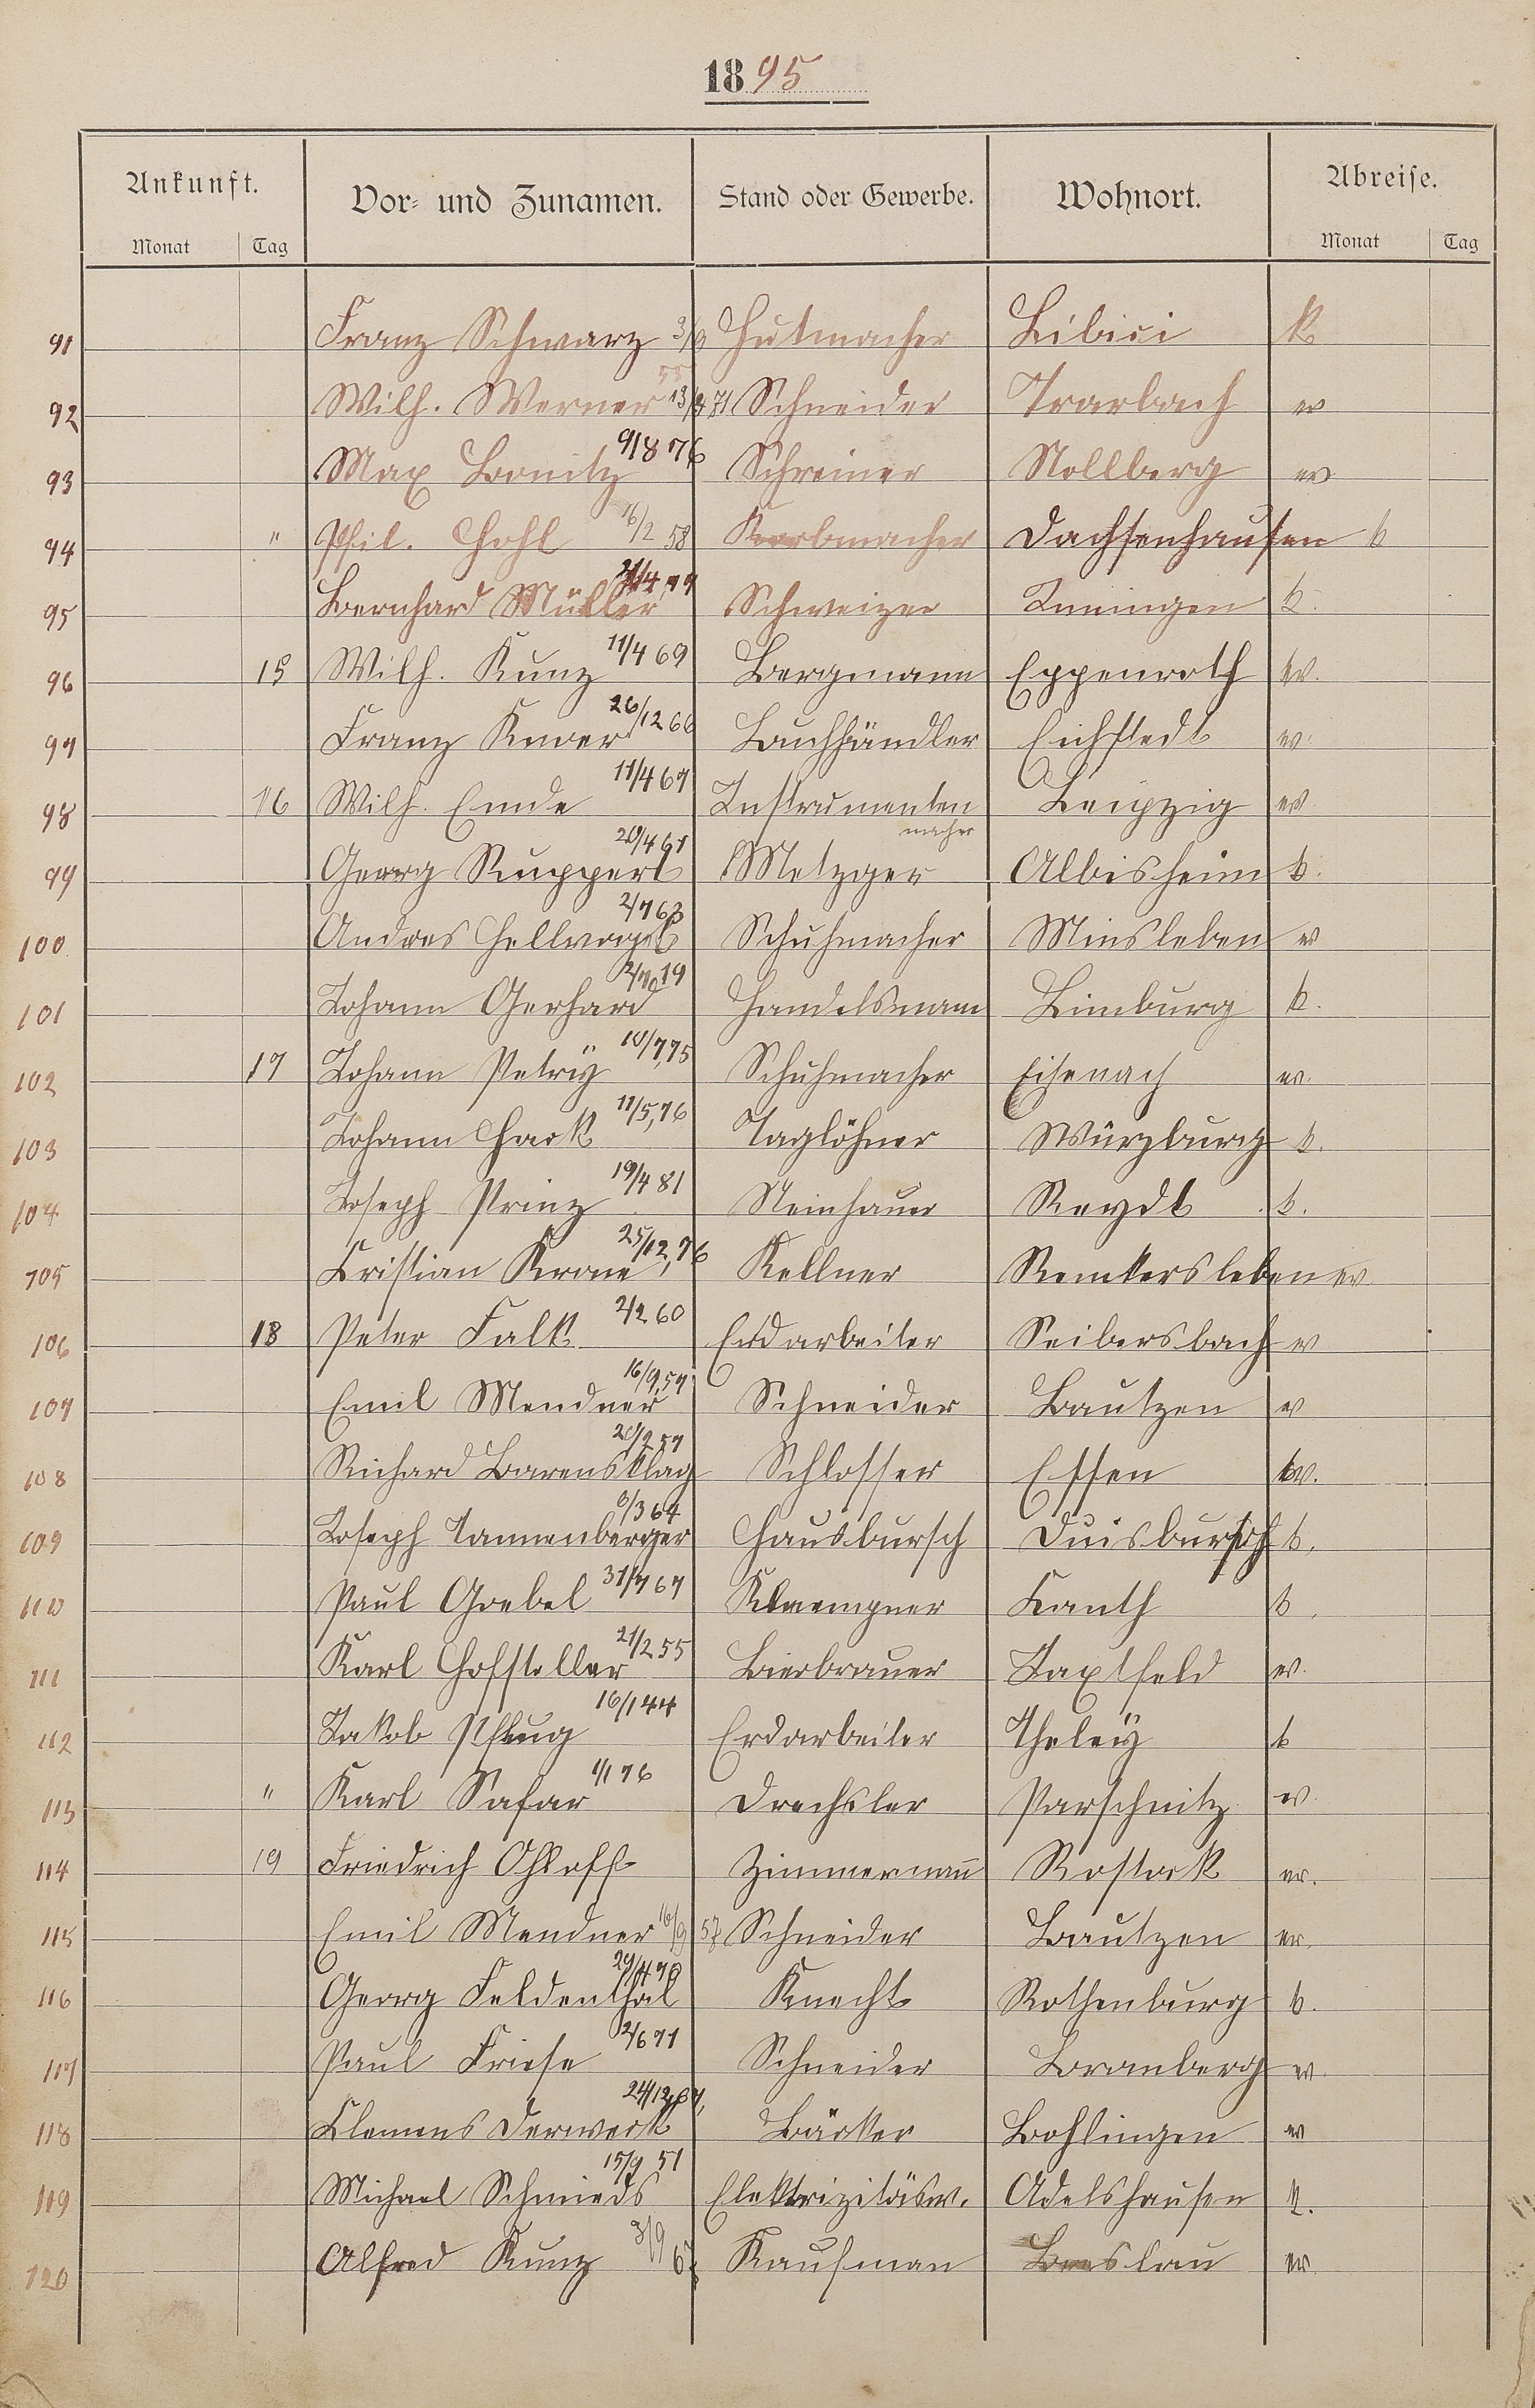 1895
Ankunft. Vor- und Zunamen. Stand oder Gewerbe. Wohnort. Abreise.
Monat Tag Monat Tag
91 Franz Schwarz 3/9 55 Hutmacher Libici k
92 Wilh. Werner 13/8 71 Schneider Trarbach ev
93 Max Bonitz 9/8 76 Schreiner Stollberg ev
94 " Phil. Hohl 16/2 58 Korbmacher Dachsenhausen k
95 Bernhard Müller 21/4 77 Schweizer Inningen k.
96 15 Wilh. Kunz 11/4 69 Bergmann Eppenroth ev.
97 Franz Knoer 26/12 66 Buchhändler Eichstedt ev.
98 16 Wilh. Emde 11/4 67 Instrumenten Leipzig ev.
macher
99 Georg Ruppert 20/4 61 Metzger Albisheim k.
100 Andres Hellvogel 2/7 63 Schuhmacher Minsleben ev
101 Johann Gerhard 2/10 19 Handelsmann Limburg k.
102 17 Johann Petry 10/7,75 Schuhmacher Eisenach ev.
103 Johann Hack 11/5,76 Taglöhner Würzburg k.
104 Joseph Prinz 19/4 81 Steinhauer Reydt k.
105 Cristian Krone 25/12,76 Kellner Remkersleben ev
106 18 Peter Falk 2/2 60 Erdarbeiter Seibersbach ev
107 Emil Mendner 16/9,57 Schneider Bautzen ev
108 Richard Barensklag 20/2 57 Schlosser Essen ev.
109 Joseph Tannenberger 6/3 64 Hausbursch Duisburg k.
110 Paul Goebel 31/7 67 Klaempner Kanth k.
111 Karl Hofsteller 21/2 55 Bierbrauer Jaxtfeld ev.
112 Jakob Pflug 16/1 44 Erdarbeiter Theley k
113 " Karl Safar 1/1 76 Drechsler Parschnitz ev.
114 19 Friedrich Ohloff Zimmermann Rostock ev.
115 Emil Mendner 16/9 57 Schneider Bautzen ev.
116 Georg Feldenthal 29/4 70 Knecht Rothenburg k.
117 Paul Friese 2/6 71 Schneider Bromberg ev.
118 Clemens Derwerk 24/12 67, Bäcker Bohlingen ev
119 Michael Schmieds 15/9 51 Elektrizitäsw. Adelshausen k.
120 Alfred Kunz 3/9 67 Kaufman Breslau ev.